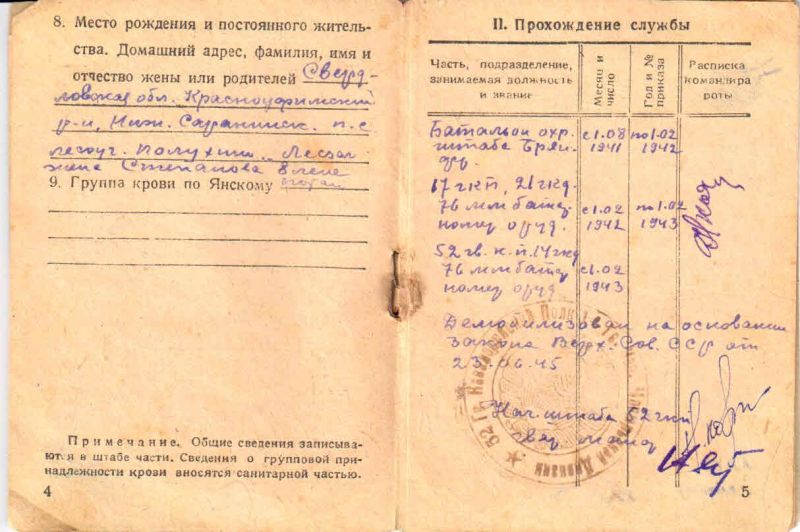 8. Место рождения и постоянного житель-
ства. Домашний адрес, фамилия, имя и
отчество жены или родителей Сверд-
ловская обл. Красноуфимский
р-н, Ниж. Саранинск. п.с
лесоуч.
жена Степанова
9. Группа крови по Янскому
Примечание. Общие сведения записыва-
ются в штабе части. Сведения о групповой при-
надлежности крови вносятся санитарной частью.
4
II. Прохождение службы
Часть, подразделение,
занимаемая должность
и звание
Месяц и
число
Год и №
приказа
Расписка
командира
роты
Батальон охр. с 1.08 по 1.02
штаба Брян 1941 1942
фр.
17 гкп, 21 гкд.
76 мм батар. с 1.02 по 1.02
номер оруд. 1942 1943
52 гв. к.п. 14 гкд
76 мм батар с 1.02
номер оруд 1943
Демобилизован на основании
Закона Верх. Сов. ССР от
23.06.45
Нач. штаба 52 гкп
гв. майор
5